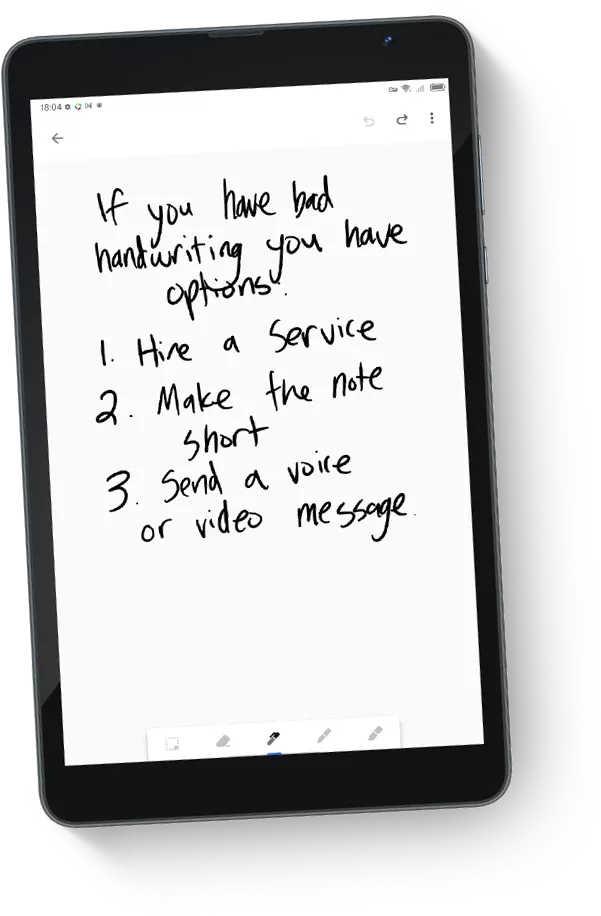 18:04
If you have bad
handwriting you have
options:
1. Hire a Service
2. Make the note
short
3. Send a voice
or video message.